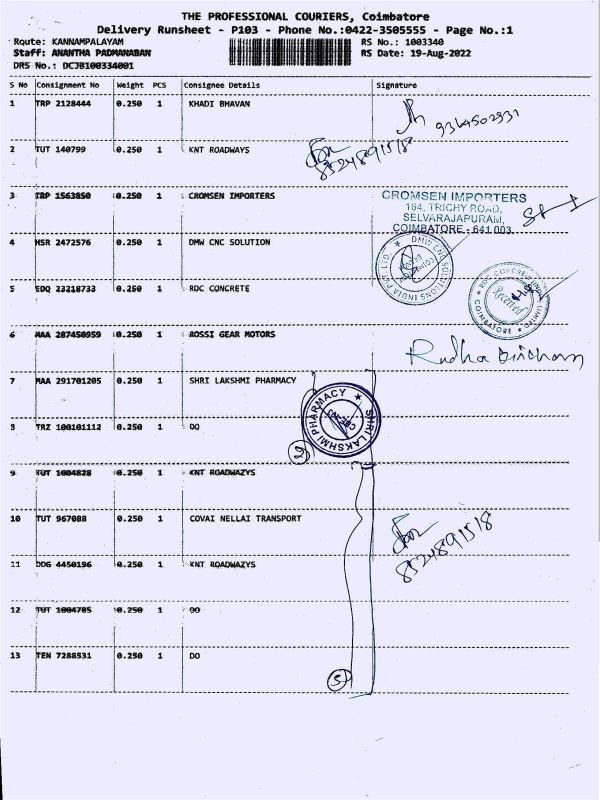 THE PROFESSIONAL COURIERS, Coimbatore
Delivery Runsheet - P103 - Phone No.:0422-3505555 - Page No.:1
Route: KANNAMPALAYAM RS No.: 1003340
Staff: ANANTHA PADMANABAN RS Date: 19-Aug-2022
DRS No.: DCJB100334001
S No Consignment No Weight PCS Consignee Details Signature
1 TRP 2128444 0.250 1 KHADI BHAVAN
9364502931
2 TUT 140799 0.250 1 KNT ROADWAYS
8524891518
3 TRP 1563850 0.250 1 CROMSEN IMPORTERS
CROMSEN IMPORTERS
164, TRICHY ROAD,
SELVARAJAPURAM,
COIMBATORE - 641 003.
4 HSR 2472576 0.250 1 DMW CNC SOLUTION
DMW CNC SOLUTIONS INDIA PVT LTD.
5 EDQ 23218733 0.250 1 RDC CONCRETE
RDC CONCRETE INDIA LIMITED
Received
COIMBATORE
6 MAA 287450959 0.250 1 ROSSI GEAR MOTORS
7 MAA 291701205 0.250 1 SHRI LAKSHMI PHARMACY
SHRI LAKSHMI PHARMACY
8 TRZ 100101112 0.250 1 DO
9 TUT 1004828 0.250 1 KNT ROADWAZYS
10 TUT 967088 0.250 1 COVAI NELLAI TRANSPORT
8524891518
11 DDG 4450196 0.250 1 KNT ROADWAZYS
12 TUT 1004785 0.250 1 DO
13 TEN 7288531 0.250 1 DO
5